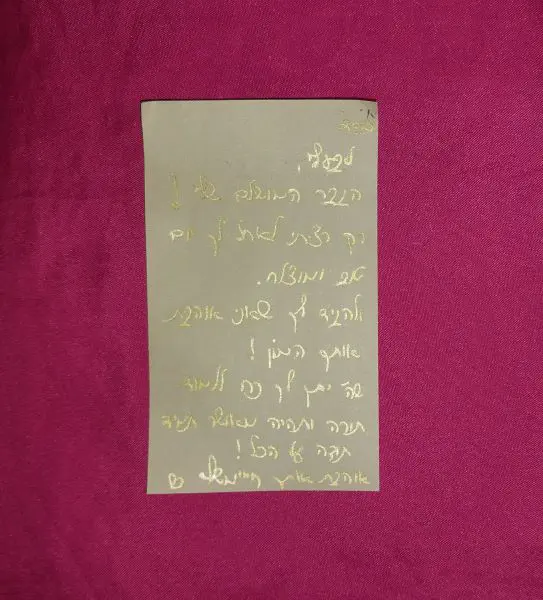 לבעלי,
הגבר המושלם שלי !
רק רציתי לאחל לך יום
טוב ומוצלח.
ולהגיד לך שאני אוהבת
אותך המון !
שה' יתן לך כח ללמוד
תורה ותהיה מאושר תמיד
תודה על הכל !
אוהבת אותך